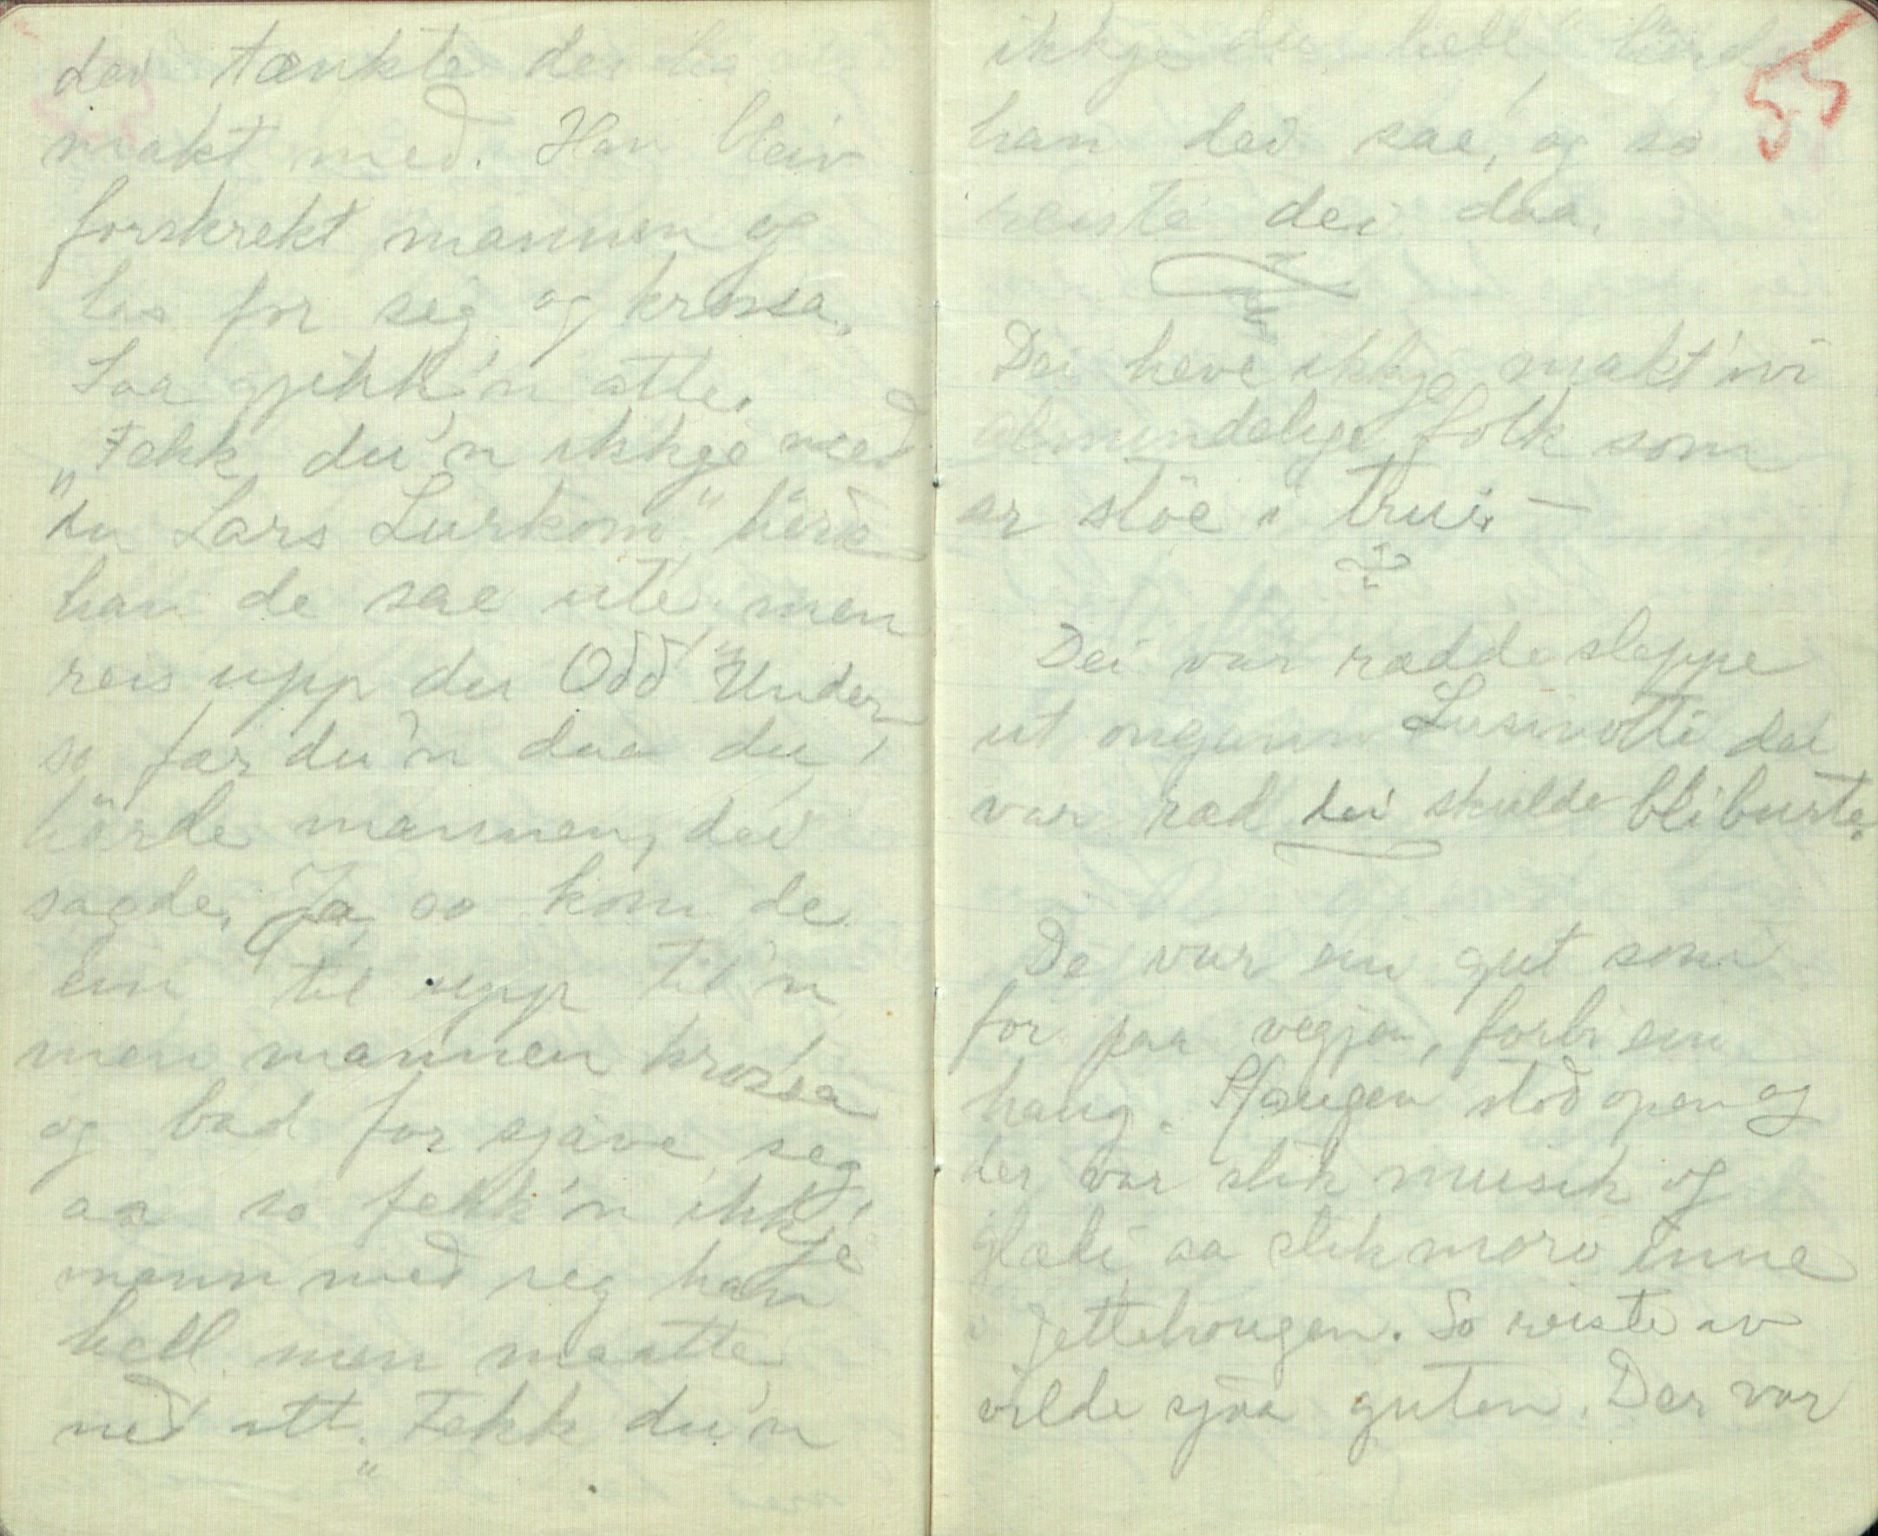 dei tænkte dei ha
makt med. Han bleiv
forskrekt mannen og
las for seg og krossa.
Saa gjikk'n atte.
"Fekk du'n ikkje med
du Lars Lurkom" hörde
han de sae ute, men
reis upp du Odd Under
so fær du'n daa du,
hörde mannen, dei
sagde. Ja, so kom de
ein til upp til'n
men mannen krossa
og bad for sjave seg
aa so fekk'n ikkje
mann med seg han
hell men maatte
ned att. "Fekk du'n
ikkje du hell" hörde
han dei sae, og so
reiste dei daa.
55
Dei heve ikkje makt 'ivi
almindelige folk som
er stöe i trui. —
Dei var rædde sleppe
ut ongann Lusinotti dei
var ræd dei skulde bli burte.
De var ein gut som
for paa vegjen, forbi ein
haug. Haugen stod open og
der var slik musik og
glæde aa slik moro inne
i Jettehougen. So reiste av
vilde sjaa guten. Der var